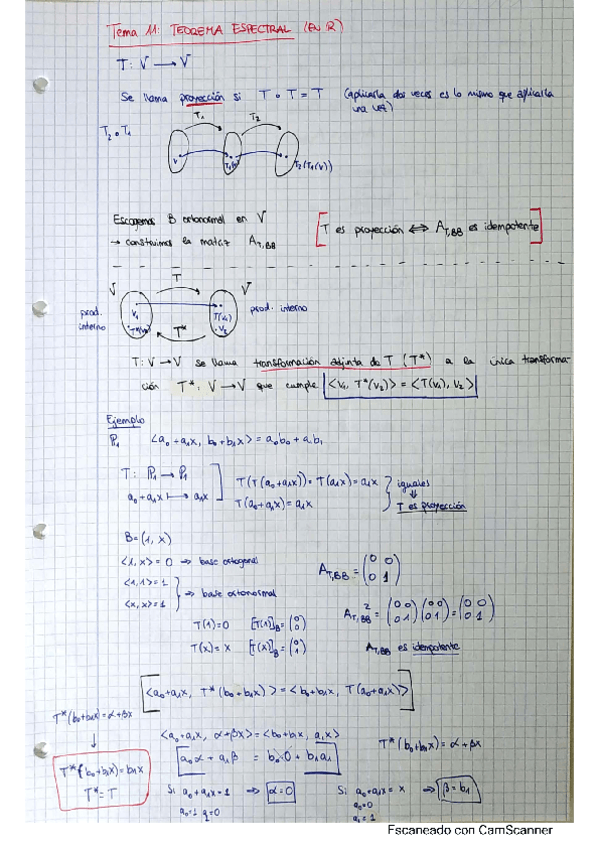 Tema 11: TEOREMA ESPECTRAL (EN R)
T: V → V
Se llama proyección si T ∘ T = T (aplicarla dos veces es lo mismo que aplicarla
una vez)
T₂ ∘ T₁
T₁ T₂
v T₁(v) T₂(T₁(v))
Escogemos B ortonormal en V
→ construimos la matriz A_T,BB
[T es proyección ⟺ A_T,BB es idempotente]
T
V V
prod. interno
v₁ T*(v₂) T(v₁) v₂
prod. interno
T*
T: V → V se llama transformación adjunta de T (T*) a la única transforma-
ción T*: V → V que cumple <v₁, T*(v₂)> = <T(v₁), v₂>
Ejemplo
P₁ <a₀ + a₁x, b₀ + b₁x> = a₀b₀ + a₁b₁
T: P₁ → P₁
a₀ + a₁x ↦ a₁x
T(T(a₀+a₁x)) = T(a₁x) = a₁x
T(a₀+a₁x) = a₁x
iguales
⇓
T es proyección
B = (1, x)
<1, x> = 0 → base ortogonal
<1, 1> = 1
<x, x> = 1
⇒ base ortonormal
A_T,BB = (0 0 / 0 1)
T(1) = 0 [T(1)]_B = (0 / 0)
T(x) = x [T(x)]_B = (0 / 1)
A²_T,BB = (0 0 / 0 1)(0 0 / 0 1) = (0 0 / 0 1)
A_T,BB es idempotente
[<a₀+a₁x, T*(b₀+b₁x)> = <b₀+b₁x, T(a₀+a₁x)>]
T*(b₀+b₁x) = α+βx
↓
T*(b₀+b₁x) = b₁x
T* = T
<a₀+a₁x, α+βx> = <b₀+b₁x, a₁x>
a₀α + a₁β = b₀·0 + b₁a₁
T*(b₀+b₁x) = α+βx
Si a₀+a₁x = 1 ⇒ α = 0
a₀=1 a₁=0
Si a₀+a₁x = x ⇒ β = b₁
a₀=0
a₁=1
Escaneado con CamScanner